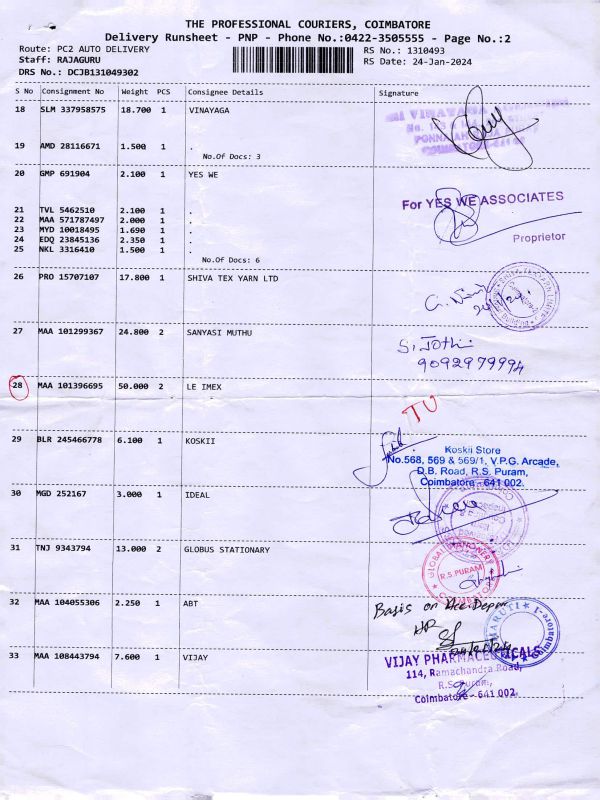 THE PROFESSIONAL COURIERS, COIMBATORE
Delivery Runsheet - PNP - Phone No.:0422-3505555 - Page No.:2
Route: PC2 AUTO DELIVERY RS No.: 1310493
Staff: RAJAGURU RS Date: 24-Jan-2024
DRS No.: DCJB131049302
S No Consignment No Weight PCS Consignee Details Signature
18 SLM 337958575 18.700 1 VINAYAGA
19 AMD 28116671 1.500 1 .
No.Of Docs: 3
20 GMP 691904 2.100 1 YES WE
For YES WE ASSOCIATES
21 TVL 5462510 2.100 1 .
22 MAA 571787497 2.000 1 .
23 MYD 10018495 1.690 1 .
24 EDQ 23845136 2.350 1 .
Proprietor
25 NKL 3316410 1.500 1 .
No.Of Docs: 6
26 PRO 15707107 17.800 1 SHIVA TEX YARN LTD
27 MAA 101299367 24.800 2 SANYASI MUTHU
S. Jothi
9092979994
28 MAA 101396695 50.000 2 LE IMEX
TU
29 BLR 245466778 6.100 1 KOSKII
Koskii Store
No.568, 569 & 569/1, V.P.G. Arcade,
D.B. Road, R.S. Puram,
Coimbatore - 641 002.
30 MGD 252167 3.000 1 IDEAL
31 TNJ 9343794 13.000 2 GLOBUS STATIONARY
R.S. PURAM
32 MAA 104055306 2.250 1 ABT
Basis on
MARUTI
Coimbatore-1
33 MAA 108443794 7.600 1 VIJAY
VIJAY PHARMACEUTICALS
114, Ramachandra Road,
R.S. Puram,
Coimbatore - 641 002.